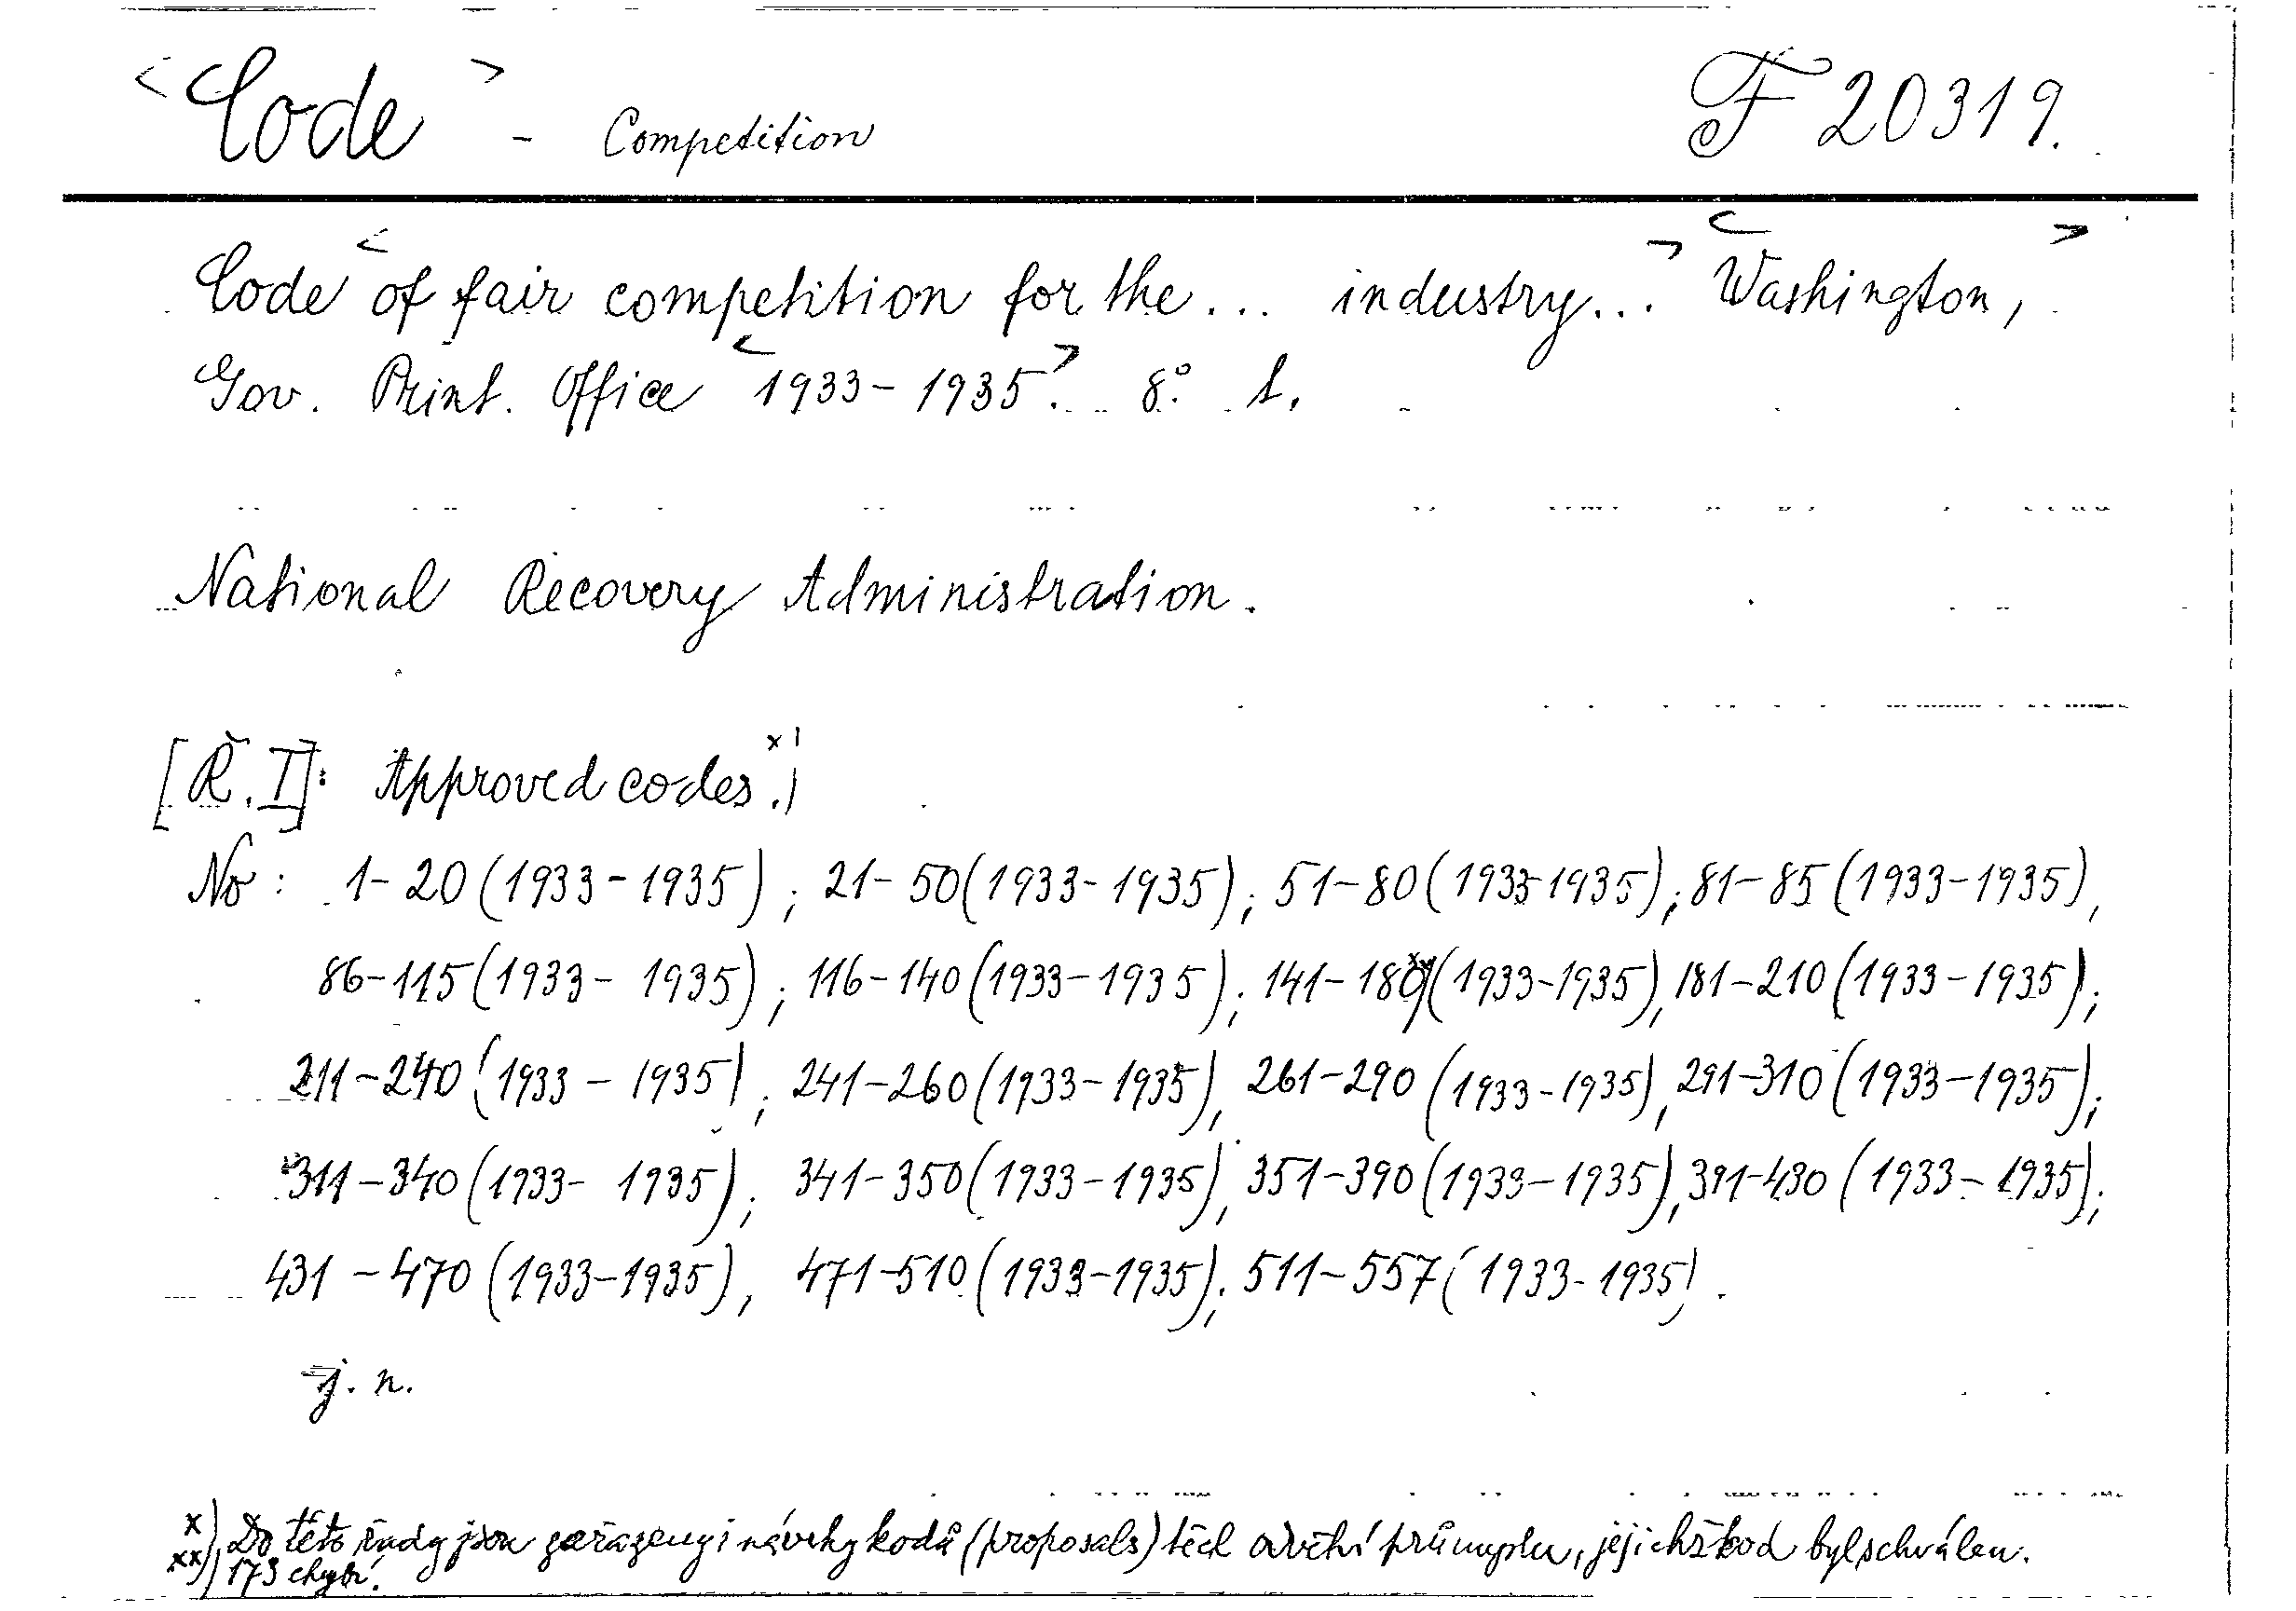 <Code> - Competition F 20319.
Code <of fair competition for the ... industry...> <Washington,>
Gov. Print. Office <1933-1935>. 8° t.
National Recovery Administration.
[Ř. I]: Approved codes.x)
No: 1-20 (1933-1935); 21-50 (1933-1935); 51-80 (1933-1935); 81-85 (1933-1935),
86-115 (1933-1935); 116-140 (1933-1935); 141-180xx) (1933-1935), 181-210 (1933-1935);
211-240 (1933-1935); 241-260 (1933-1935), 261-290 (1933-1935), 291-310 (1933-1935);
311-340 (1933-1935); 341-350 (1933-1935), 351-390 (1933-1935), 391-430 (1933-1935);
431-470 (1933-1935), 471-510 (1933-1935); 511-557 (1933-1935).
j. n.
x) Do této řady jsou zařazeny i návrhy kodů (proposals) těch odvětví průmyslu, jejichž kod byl schválen.
xx) 173 chybí.